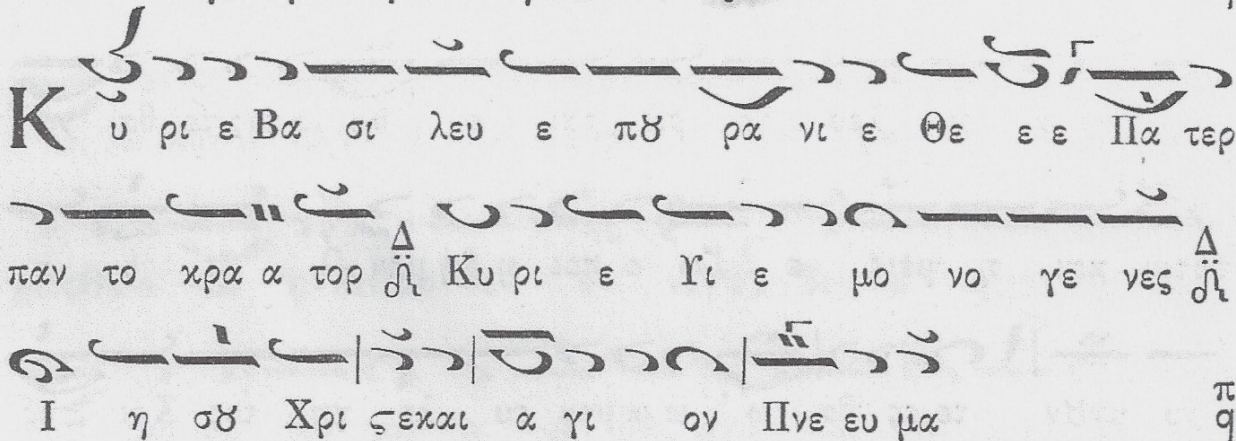 Κ υ ρι ε Βα σι λευ ε πȣ ρα νι ε Θε ε ε Πα τερ
παν το κρα α τορ Δ Κυ ρι ε Υι ε μο νο γε νες Δ
Ι η σȣ Χρι ϛε και α γι ον Πνε ευ μα π q